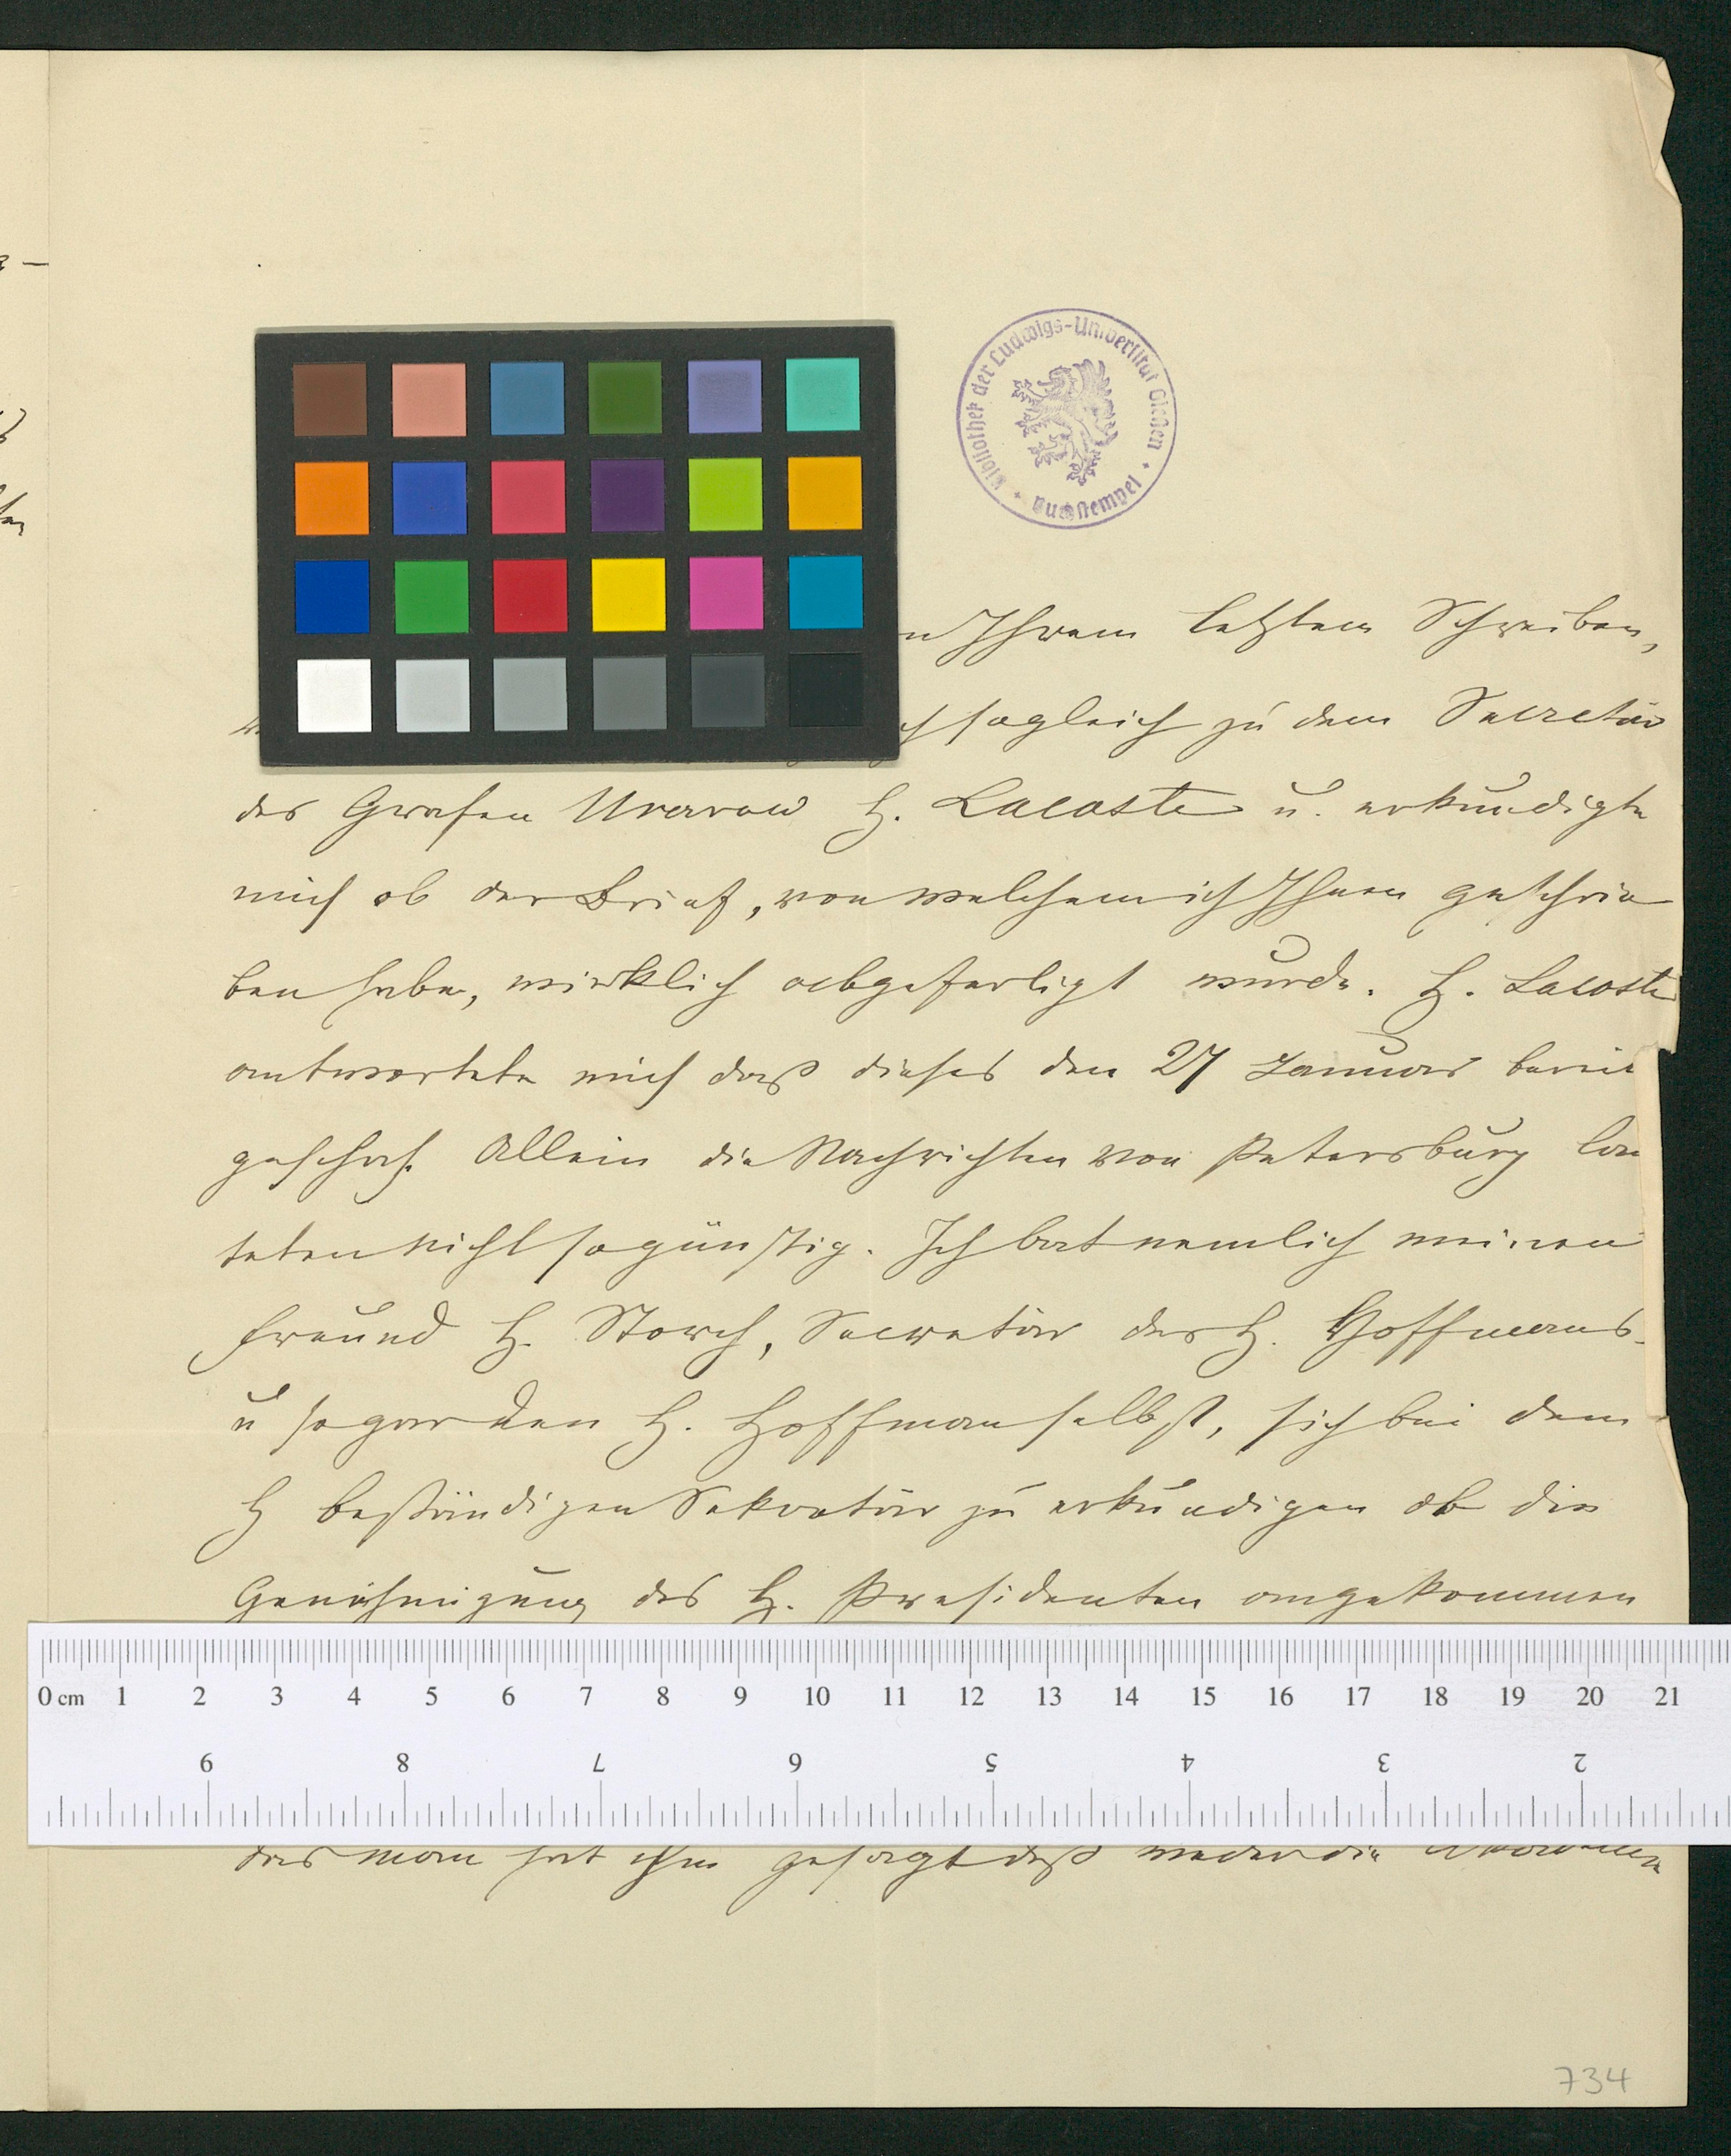 Bibliothek der Ludwigs-Universität Gießen
Buchstempel
n Ihrem letzten Schreiben,
sogleich zu dem Secretär
des Grafen Uvarow H. Lacoste u. erkundigte
mich ob der Brief, von welchem ich Ihnen geschrie
ben habe, wirklich abgefertigt wurde. H. Lacoste
antwortete mich daß dieses den 27 Januar bereit
geschah. Allein die Nachrichten von Petersburg lau
teten nicht so günstig. Ich bat nemlich meinen
Freund H. Storch, Secretär des H. Hoffmans-
u sogar den H. Hoffman selbst, sich bei dem
H beständigen Sekretär zu erkundigen ob die
Genehmigung des H. Präsidenten angekommen
0 cm 1 2 3 4 5 6 7 8 9 10 11 12 13 14 15 16 17 18 19 20 21
9 8 7 6 5 4 3 2
man hat ihm gesagt daß weder die
734